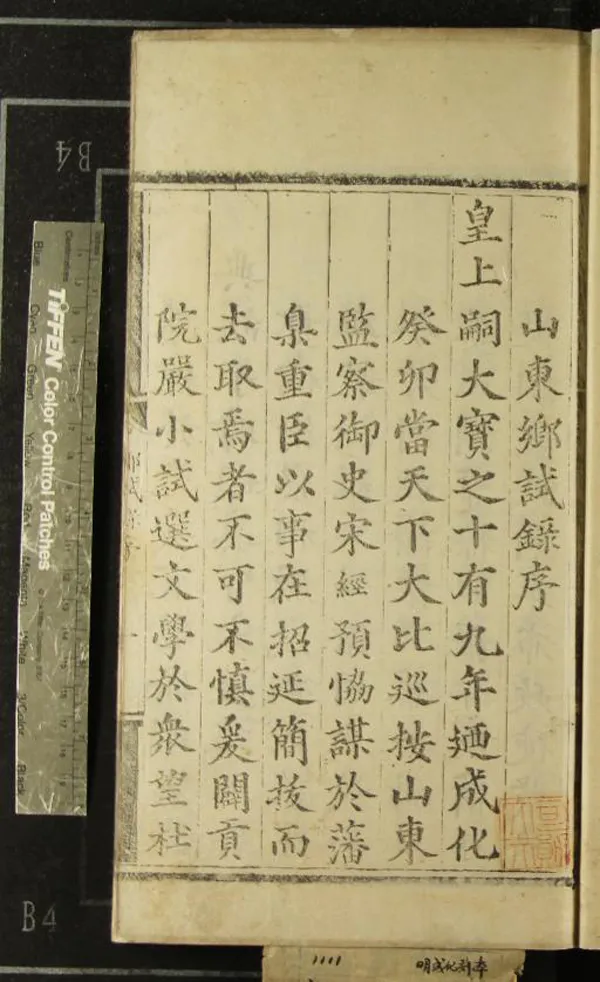 山東鄉試錄序
皇上嗣大寶之十有九年迺成化
癸卯當天下大比巡按山東
監察御史宋經預恊謀於藩
臬重臣以事在招延簡拔而
去取焉者不可不慎爰闢貢
院嚴小試選文學於衆望杜
B4
B4
TIFFEN Color Control Patches
Blue
Green
Yellow
Magenta
White
3/Color
Black
明成化刻本